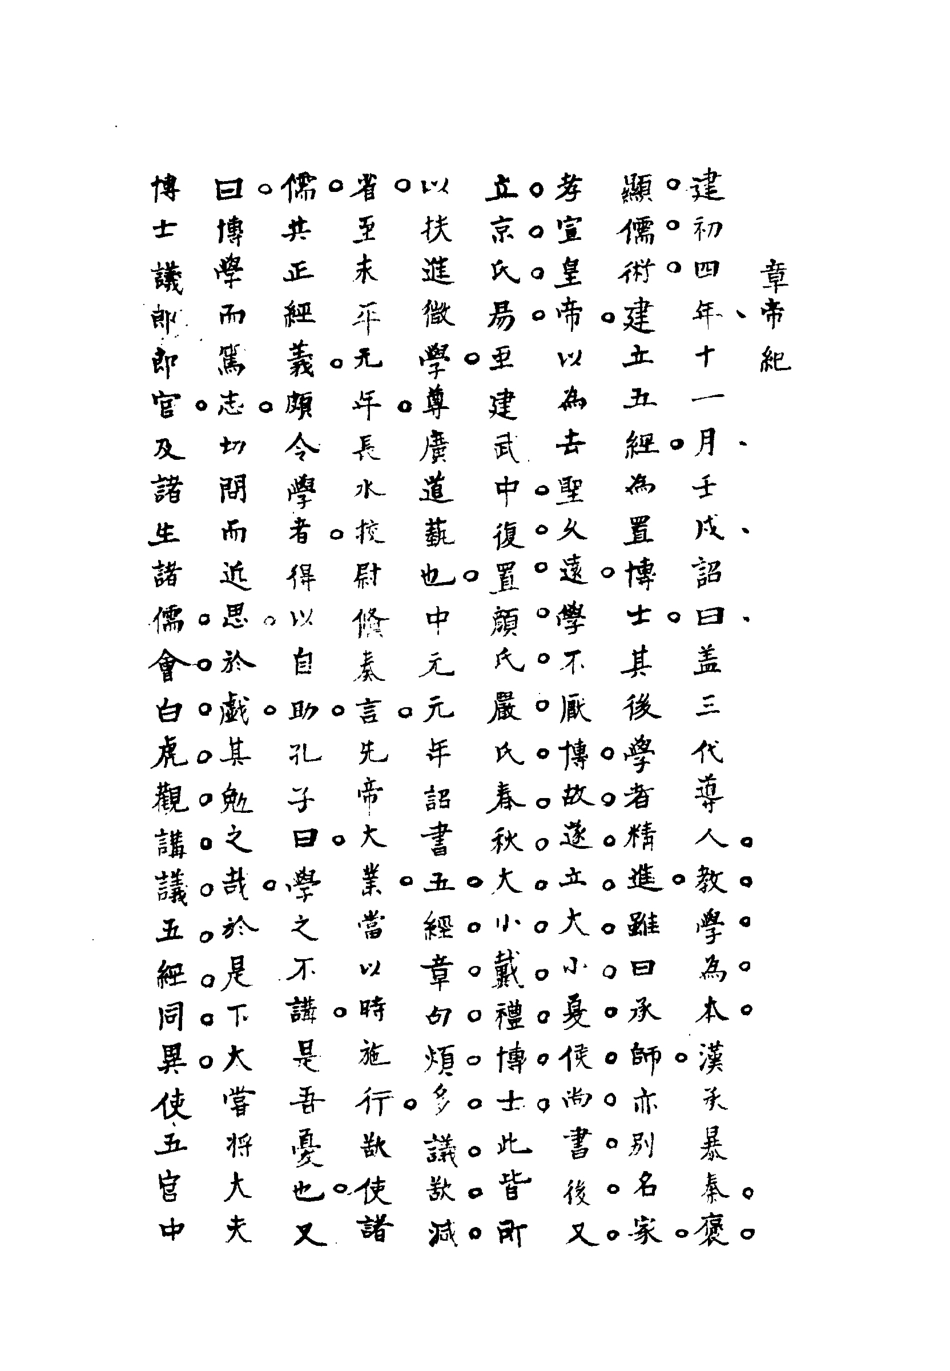 章帝紀
建初四年十一月壬戌詔曰盖三代導人教學為本漢承暴秦褒
顯儒術建立五經為置博士其後學者精進雖曰承師亦別名家
孝宣皇帝以為去聖久遠學不厭博故遂立大小夏侯尚書後又
立京氏易至建武中復置顏氏嚴氏春秋大小戴禮博士此皆所
以扶進微學尊廣道藝也中元元年詔書五經章句煩多議欲減
省至永平元年長水校尉鯈奏言先帝大業當以時施行欲使諸
儒共正經義頗令學者得以自助孔子曰學之不講是吾憂也又
曰博學而篤志切問而近思於戲其勉之哉於是下大常将大夫
博士議郎郎官及諸生諸儒會白虎觀講議五經同異使五官中